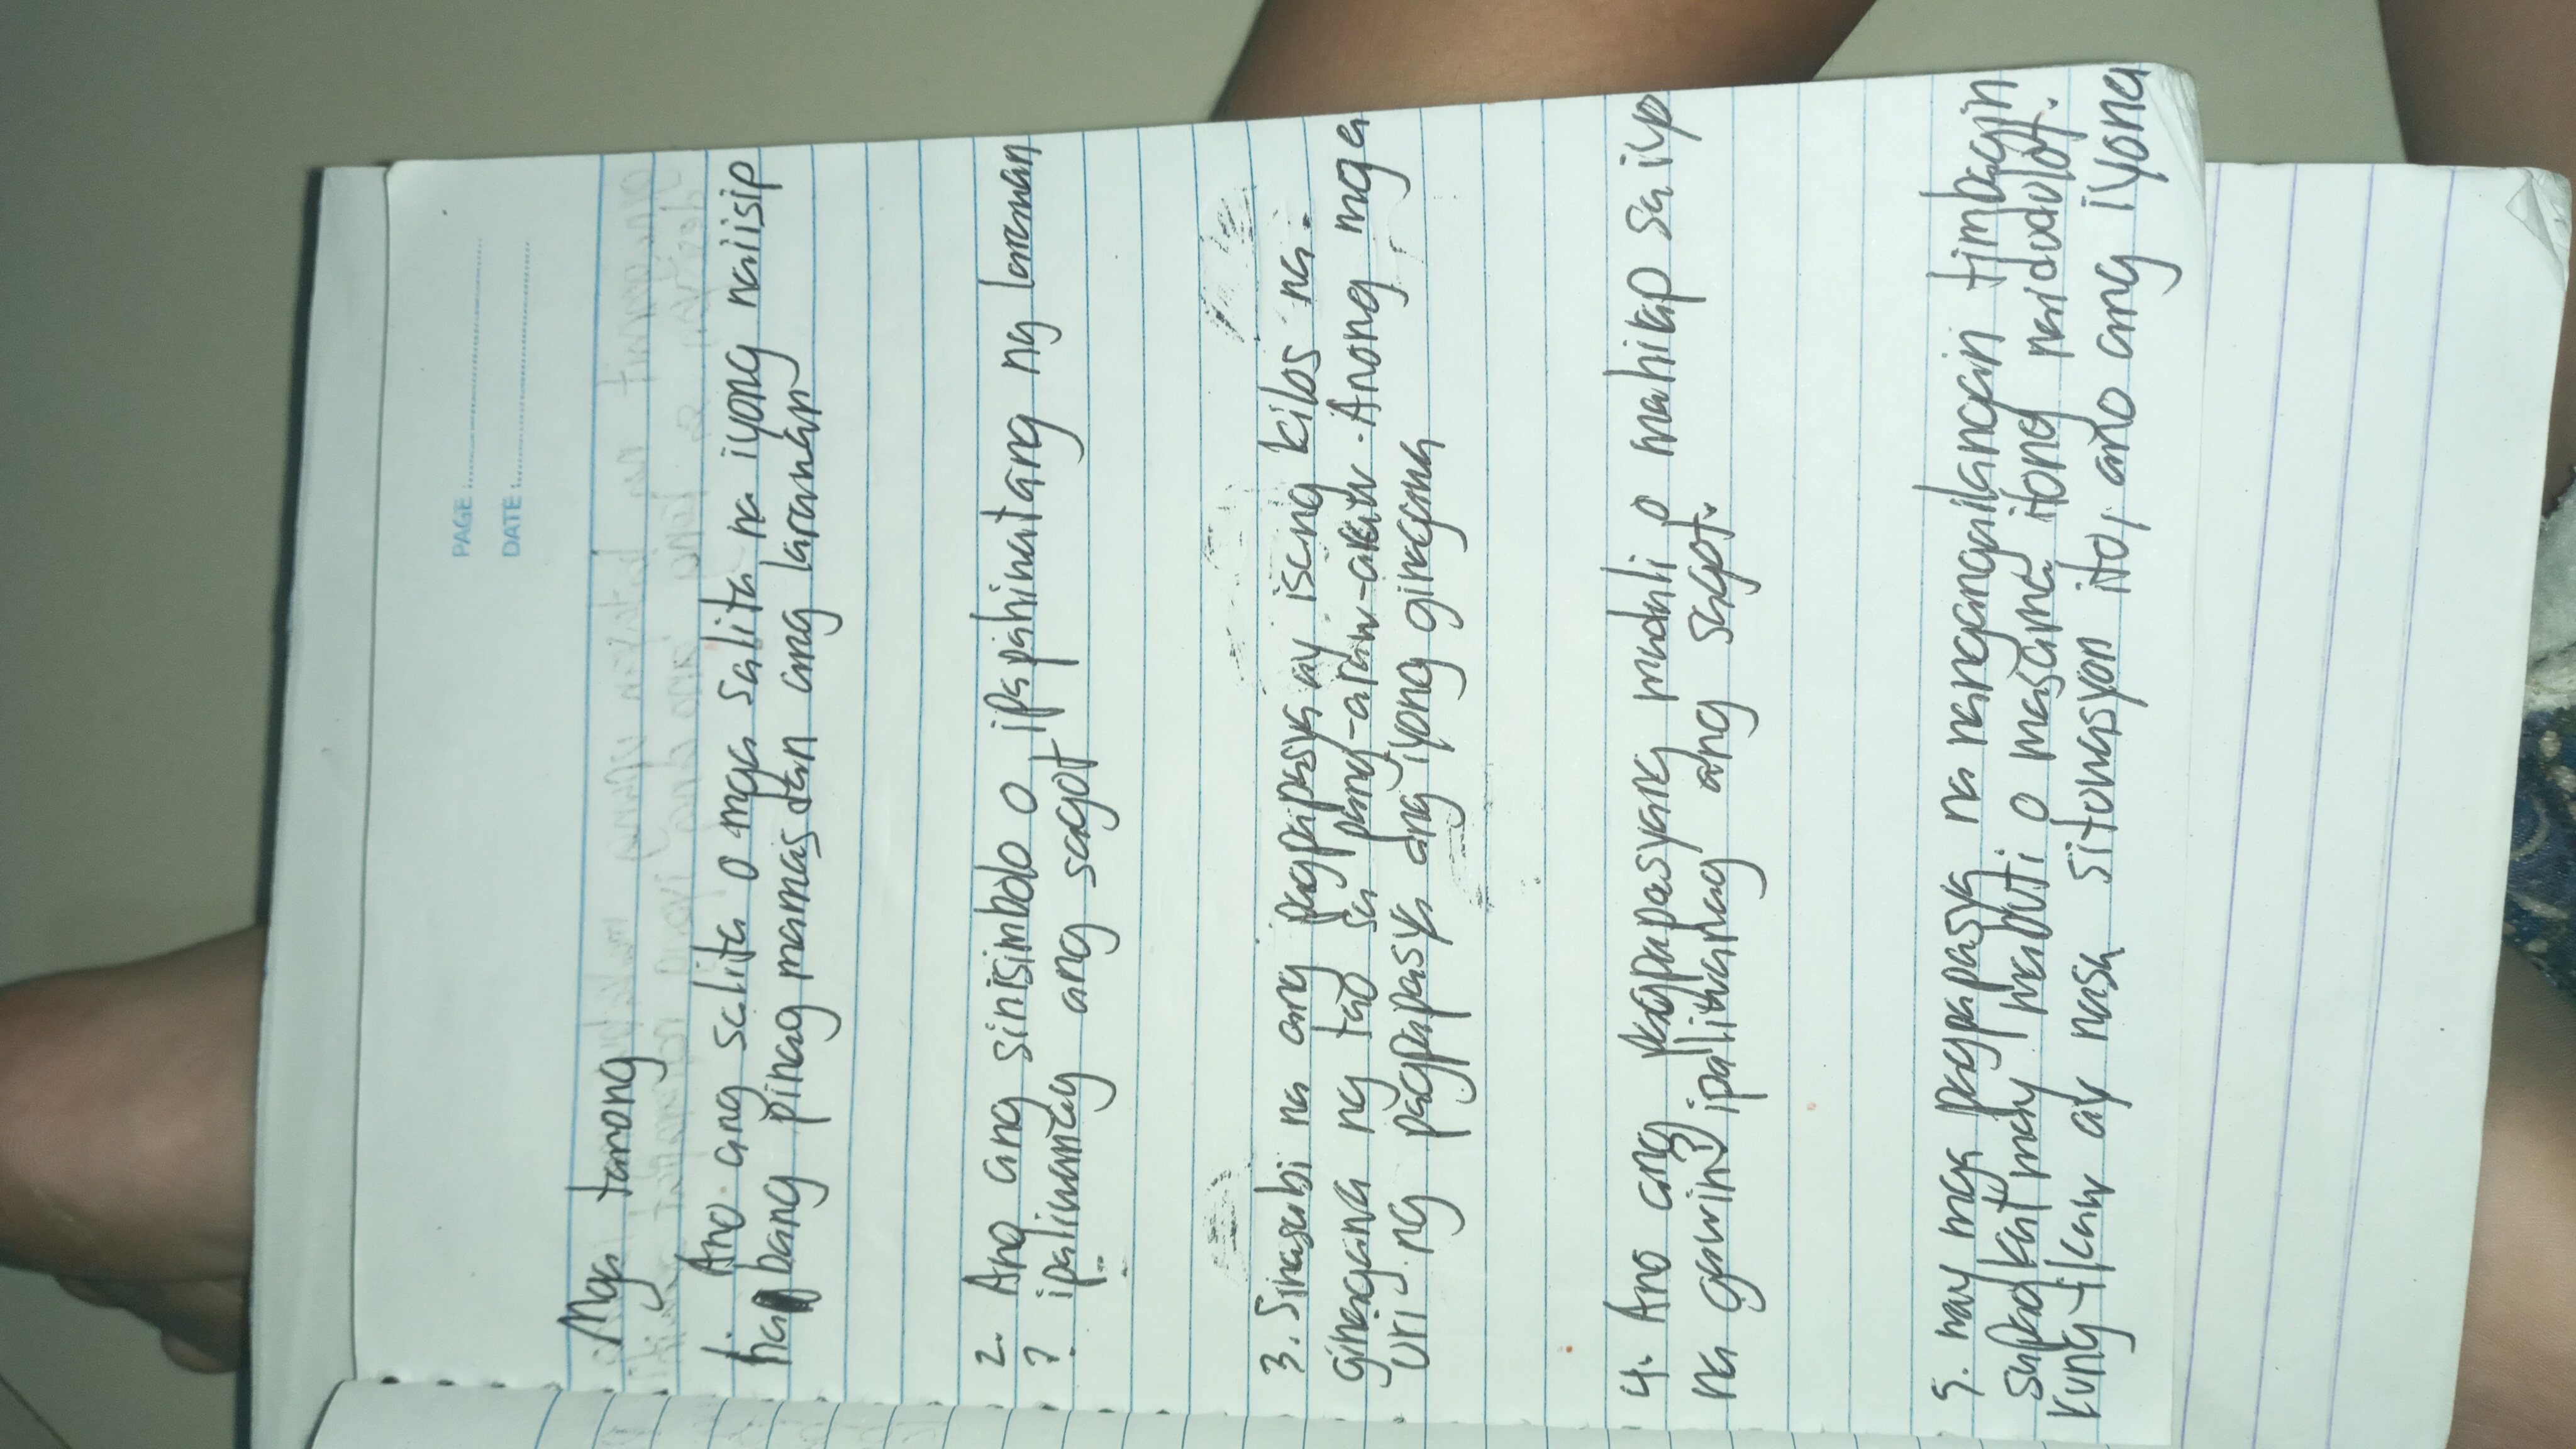 PAGE :
DATE :
Mga tanong
1. Ano ang salita o mga salita na iyong naiisip
habang pinag mamasdan ang larawan
2. Ano ang sinisimbolo o ipapahinatang ng larawan
? ipaliwanag ang sagot
3. Sinasabi na ang pagpapasya ay isang kilos na
ginagawa ng tao sa pang-araw-araw. Anong mga
uri ng pagpapasya ang iyong ginagawa
4. Ano ang pagpapasyang madali o mahirap sa iyo
na gawin? ipaliwanag ang sagot.
5. may mga pagpapasya na nangangailangan timbagin
sapagkat may mabuti o masama itong naidudulot.
kung ikaw ay nasa sitwasyon ito, ano ang iyong